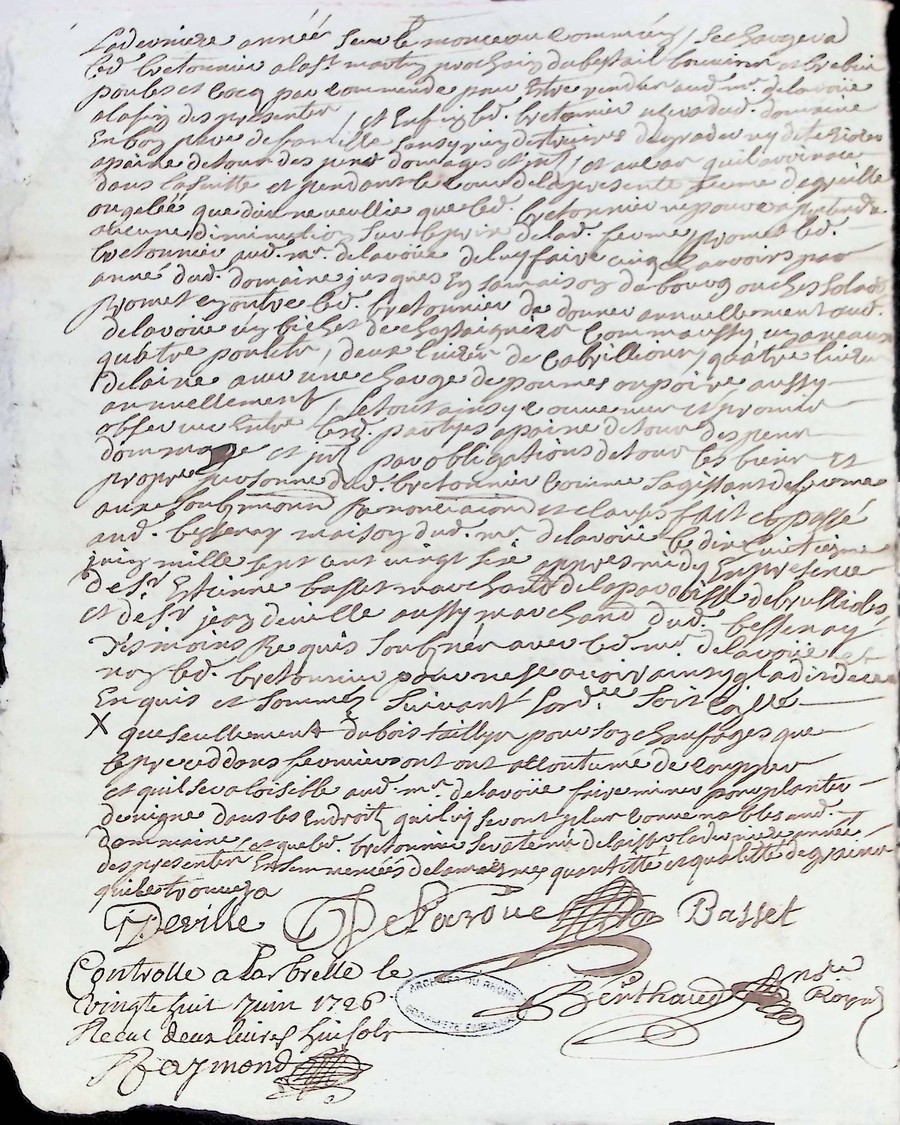 La derniere année sera le monceau commun, se chargera
led. bretonnier a la st. martin prochain du bestail
poules et cocq par commende pour estre rendus aud. mr. delavoüe
a la fin des presentes, et enfin led. bretonnier usera dud. domaine
En bon pere de famille sans y rien detruire degrader ny deteriorer
a paine de tous despens domages et int. et au cas qu'il avint
dans la suitte et pendant le cours de la presente ferme de gresle
ou gelée que dieu ne veullie que led. bretonnier ne poura pretendre
aucune diminution sur le prix de lad. ferme, promet led.
bretonnier aud. mr. delavoüe de luy faire cinq charrois par
année dud. domaine jusques en sa maison du bourg ou ches
Promet en outre led. bretonnier de donner annuellement aud.
delavoüe un bichet de chastaignes comme aussy un
quatre poulets, deux livres de cabrillions, quatre livres
de laine avec une charge de pommes ou poire aussy
annuellement, le tout ainsy convenu et promis
observer Entre lesd. partyes a paine de tous despens
dommage et int. par obligations de tous les biens et
propre personne dud. bretonnier comme s'agissant de ferme
aux soubmissions renonciaons et clauses fait et passé
aud. bessenay maison dud. mr. delavoüe le dix huitieme
juin mille sept cent vingt six appres midy En presence
de sr. Estienne basset marchand de la paroisse de brullioles
et de sr. jean deville aussy marchand dud. bessenay
tesmoins Requis soubsignés avec led. mr. delavoüe et
non led. bretonnier pour ne scavoir ainsy qu'la dit de ce
Enquis et sommés suivant l'ord.ce soit
X que seullement du bois taillyx pour son chaufages que
le preceddans fermiers ont accoutumé de coupper
et quil sera loisille aud. mr. delavoüe faire miner pour planter
de vigne dans les Endroit quilly seront plus convenables aud.
dommaine et que led. bretonnier sera tenu de laisser la derniere année
des presentes Ensemencées de la mesme quantitté et qualitté de grains
quil se trouvera
Deville Delavoüe Basset
Controlle a Larbrelle le
vingt huit Juin 1726
Berthaud no.re Royal
Receu deux livres huit sols
Raymond
ARCHIVES DU RHONE